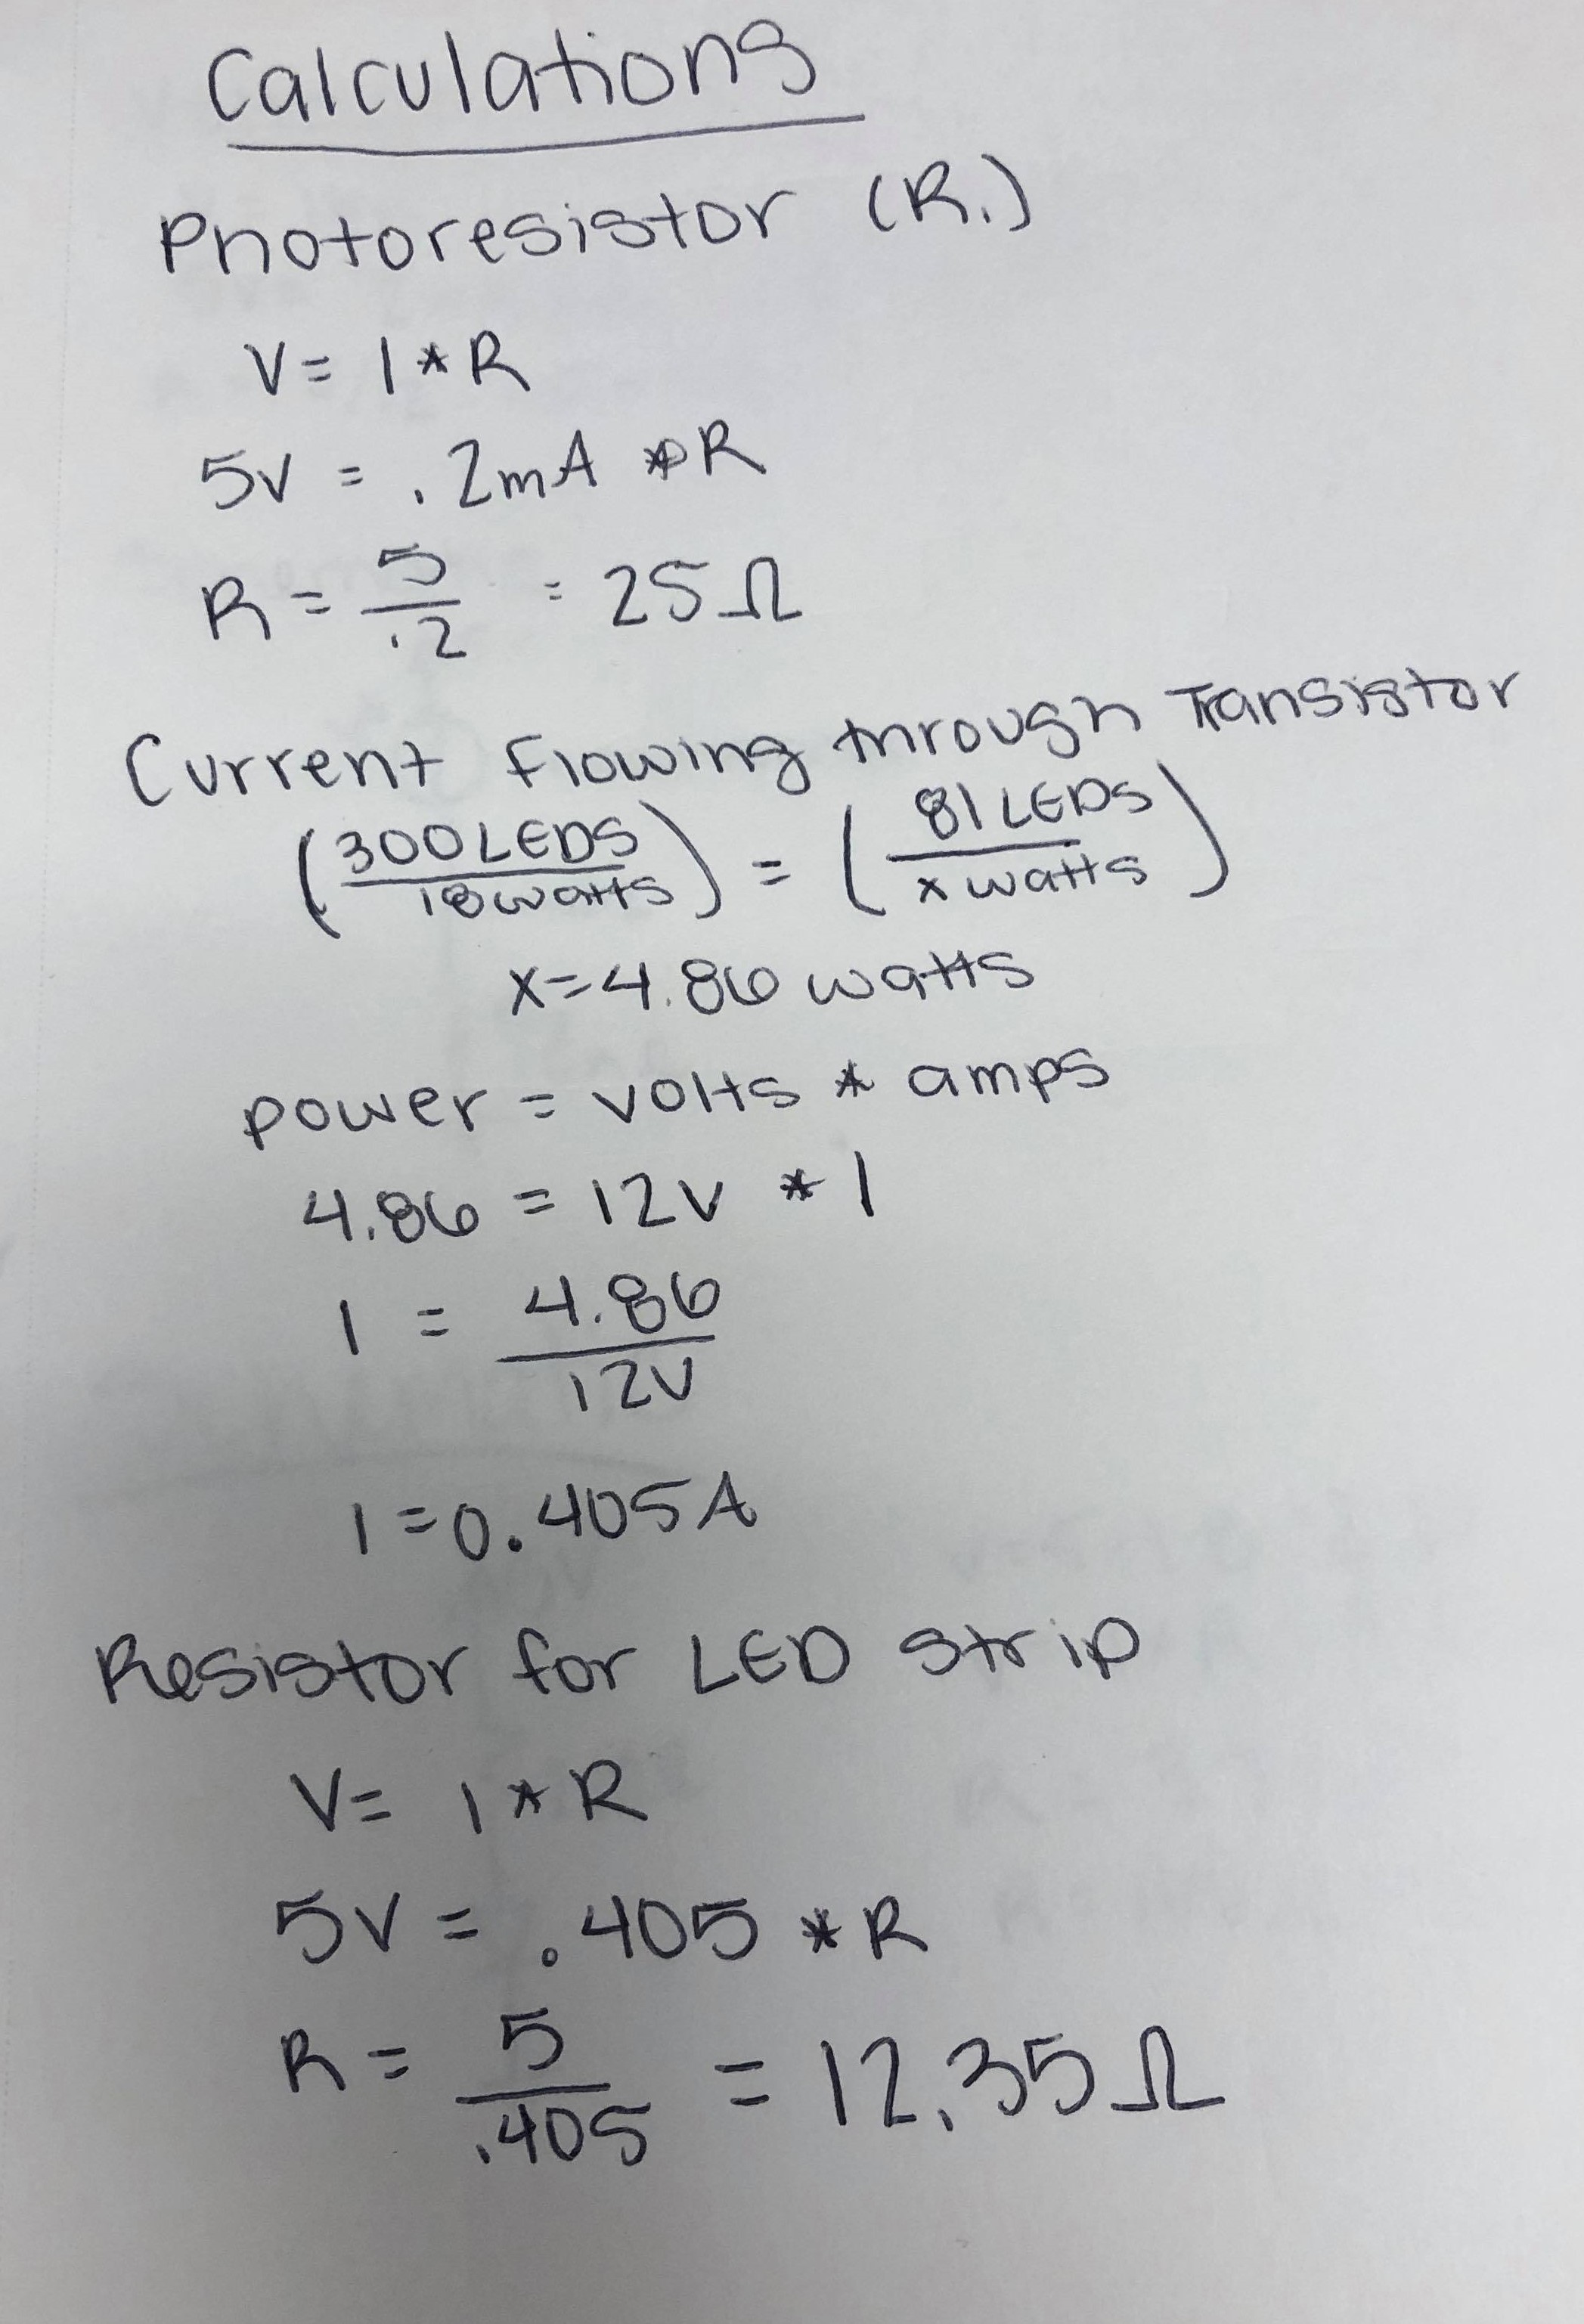 Calculations
Photoresistor (R1)
V = I * R
5V = .2mA * R
R = 5/.2 = 25Ω
Current flowing through Transistor
(300 LEDS/18 watts) = (81 LEDS/x watts)
x = 4.86 watts
power = volts * amps
4.86 = 12V * I
I = 4.86/12V
I = 0.405A
Resistor for LED strip
V = I * R
5V = .405 * R
R = 5/.405 = 12.35Ω